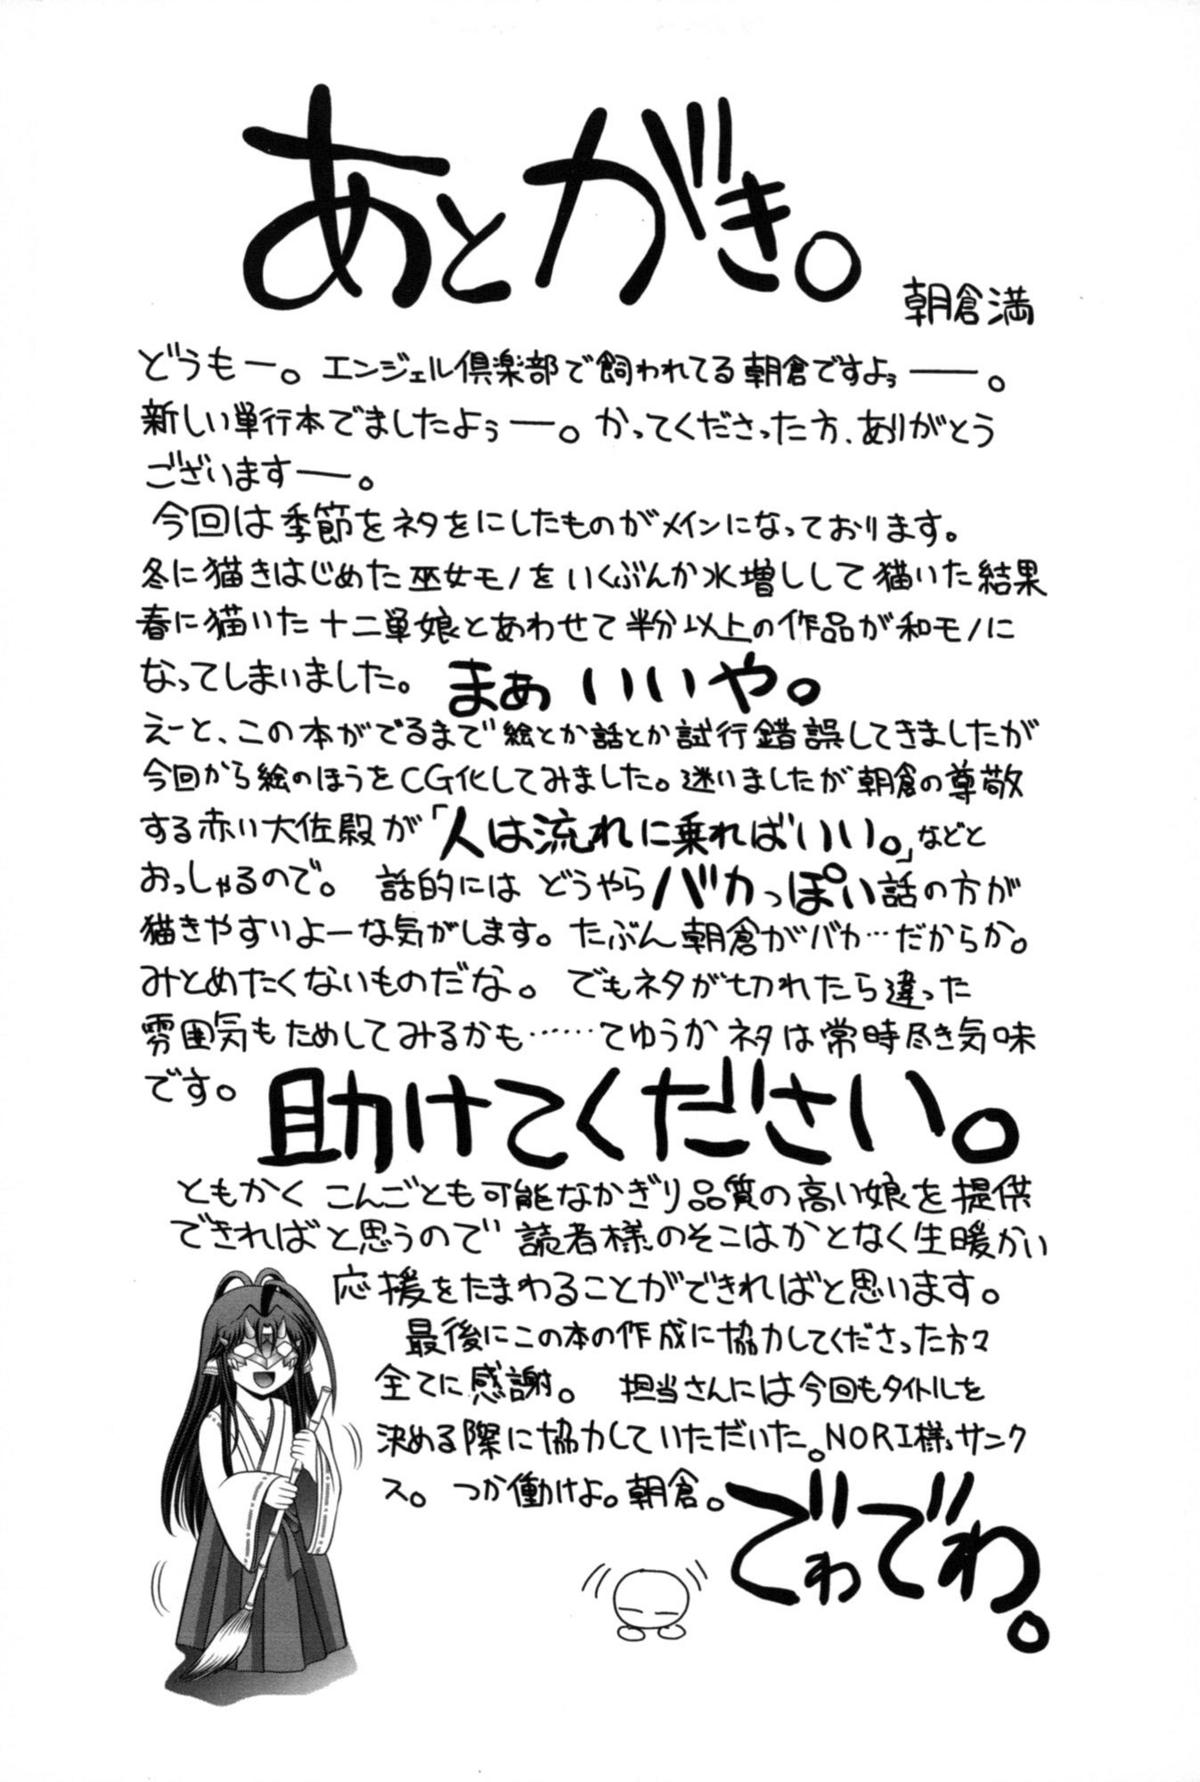 あとがき。
朝倉満
どうもー。エンジェル倶楽部で飼われてる朝倉ですよぅ――。
新しい単行本でましたよぅ―。かってくださった方、ありがとう
ございますー。
今回は季節をネタをにしたものがメインになっております。
冬に描きはじめた巫女モノをいくぶんか水増しして描いた結果
春に描いた十二単娘とあわせて半分以上の作品が和モノに
なってしまいました。まぁいいや。
えーと、この本がでるまで絵とか話とか試行錯誤してきましたが
今回から絵のほうをCG化してみました。迷いましたが朝倉の尊敬
する赤い大佐殿が「人は流れに乗ればいい。」などと
おっしゃるので。話的にはどうやらバカっぽい話の方が
描きやすいよーな気がします。たぶん朝倉がバカ…だからか。
みとめたくないものだな。でもネタが切れたら違った
雰囲気もためしてみるかも……てゆうかネタは常時尽き気味
です。助けてください。
ともかくこんごとも可能なかぎり品質の高い娘を提供
できればと思うので読者様のそこはかとなく生暖かい
応援をたまわることができればと思います。
最後にこの本の作成に協力してくださった方々
全てに感謝。担当さんには今回もタイトルを
決める際に協力していただいた。NORI様サンク
ス。つか働けよ。朝倉。でわでわ。